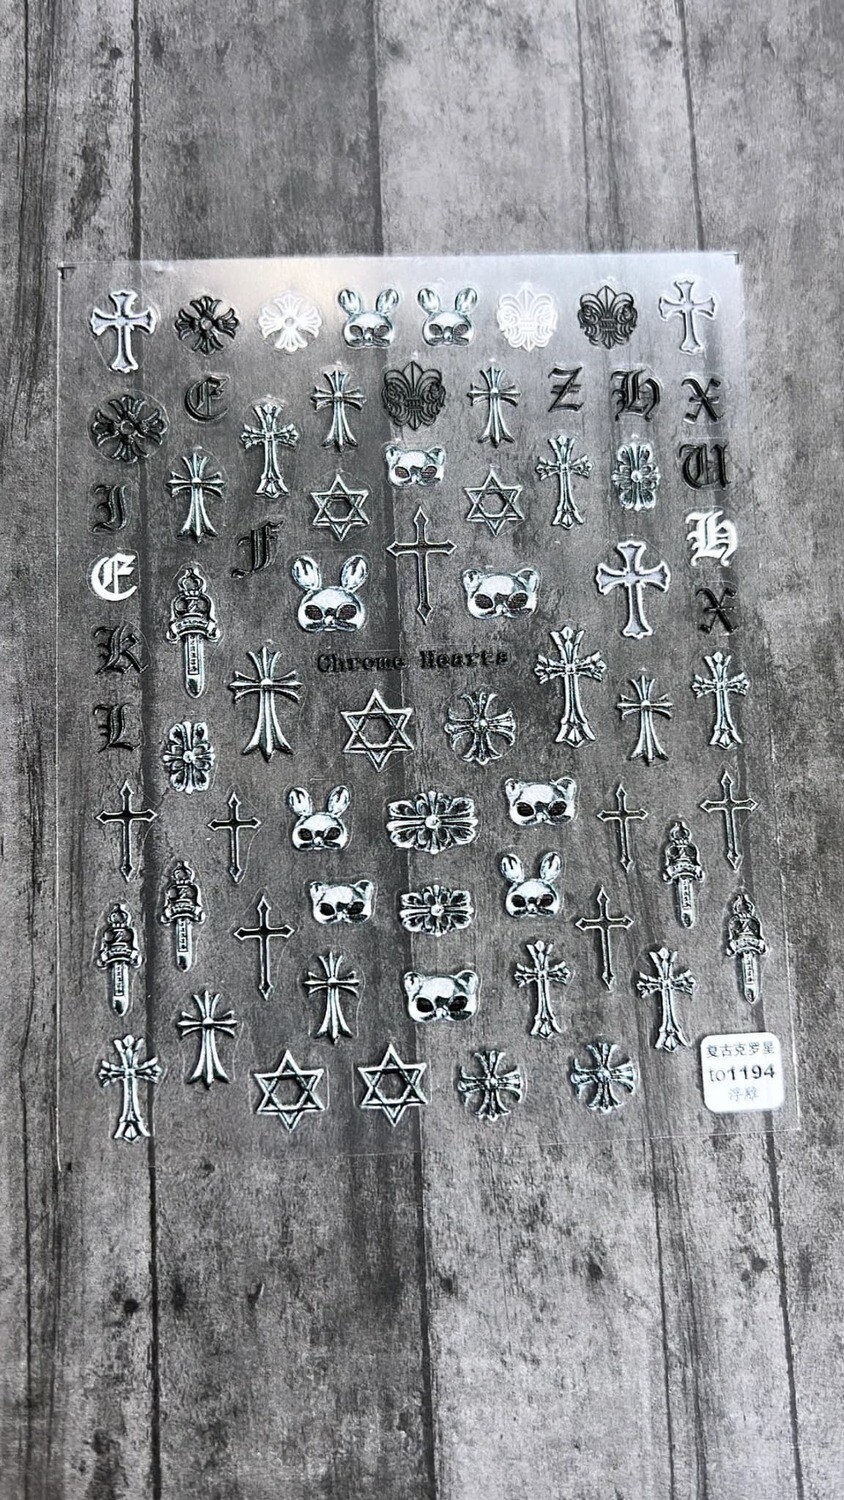 E
Z H X
I U
F H
E X
Chrome Hearts
K
L
复古克罗星
to1194
浮雕